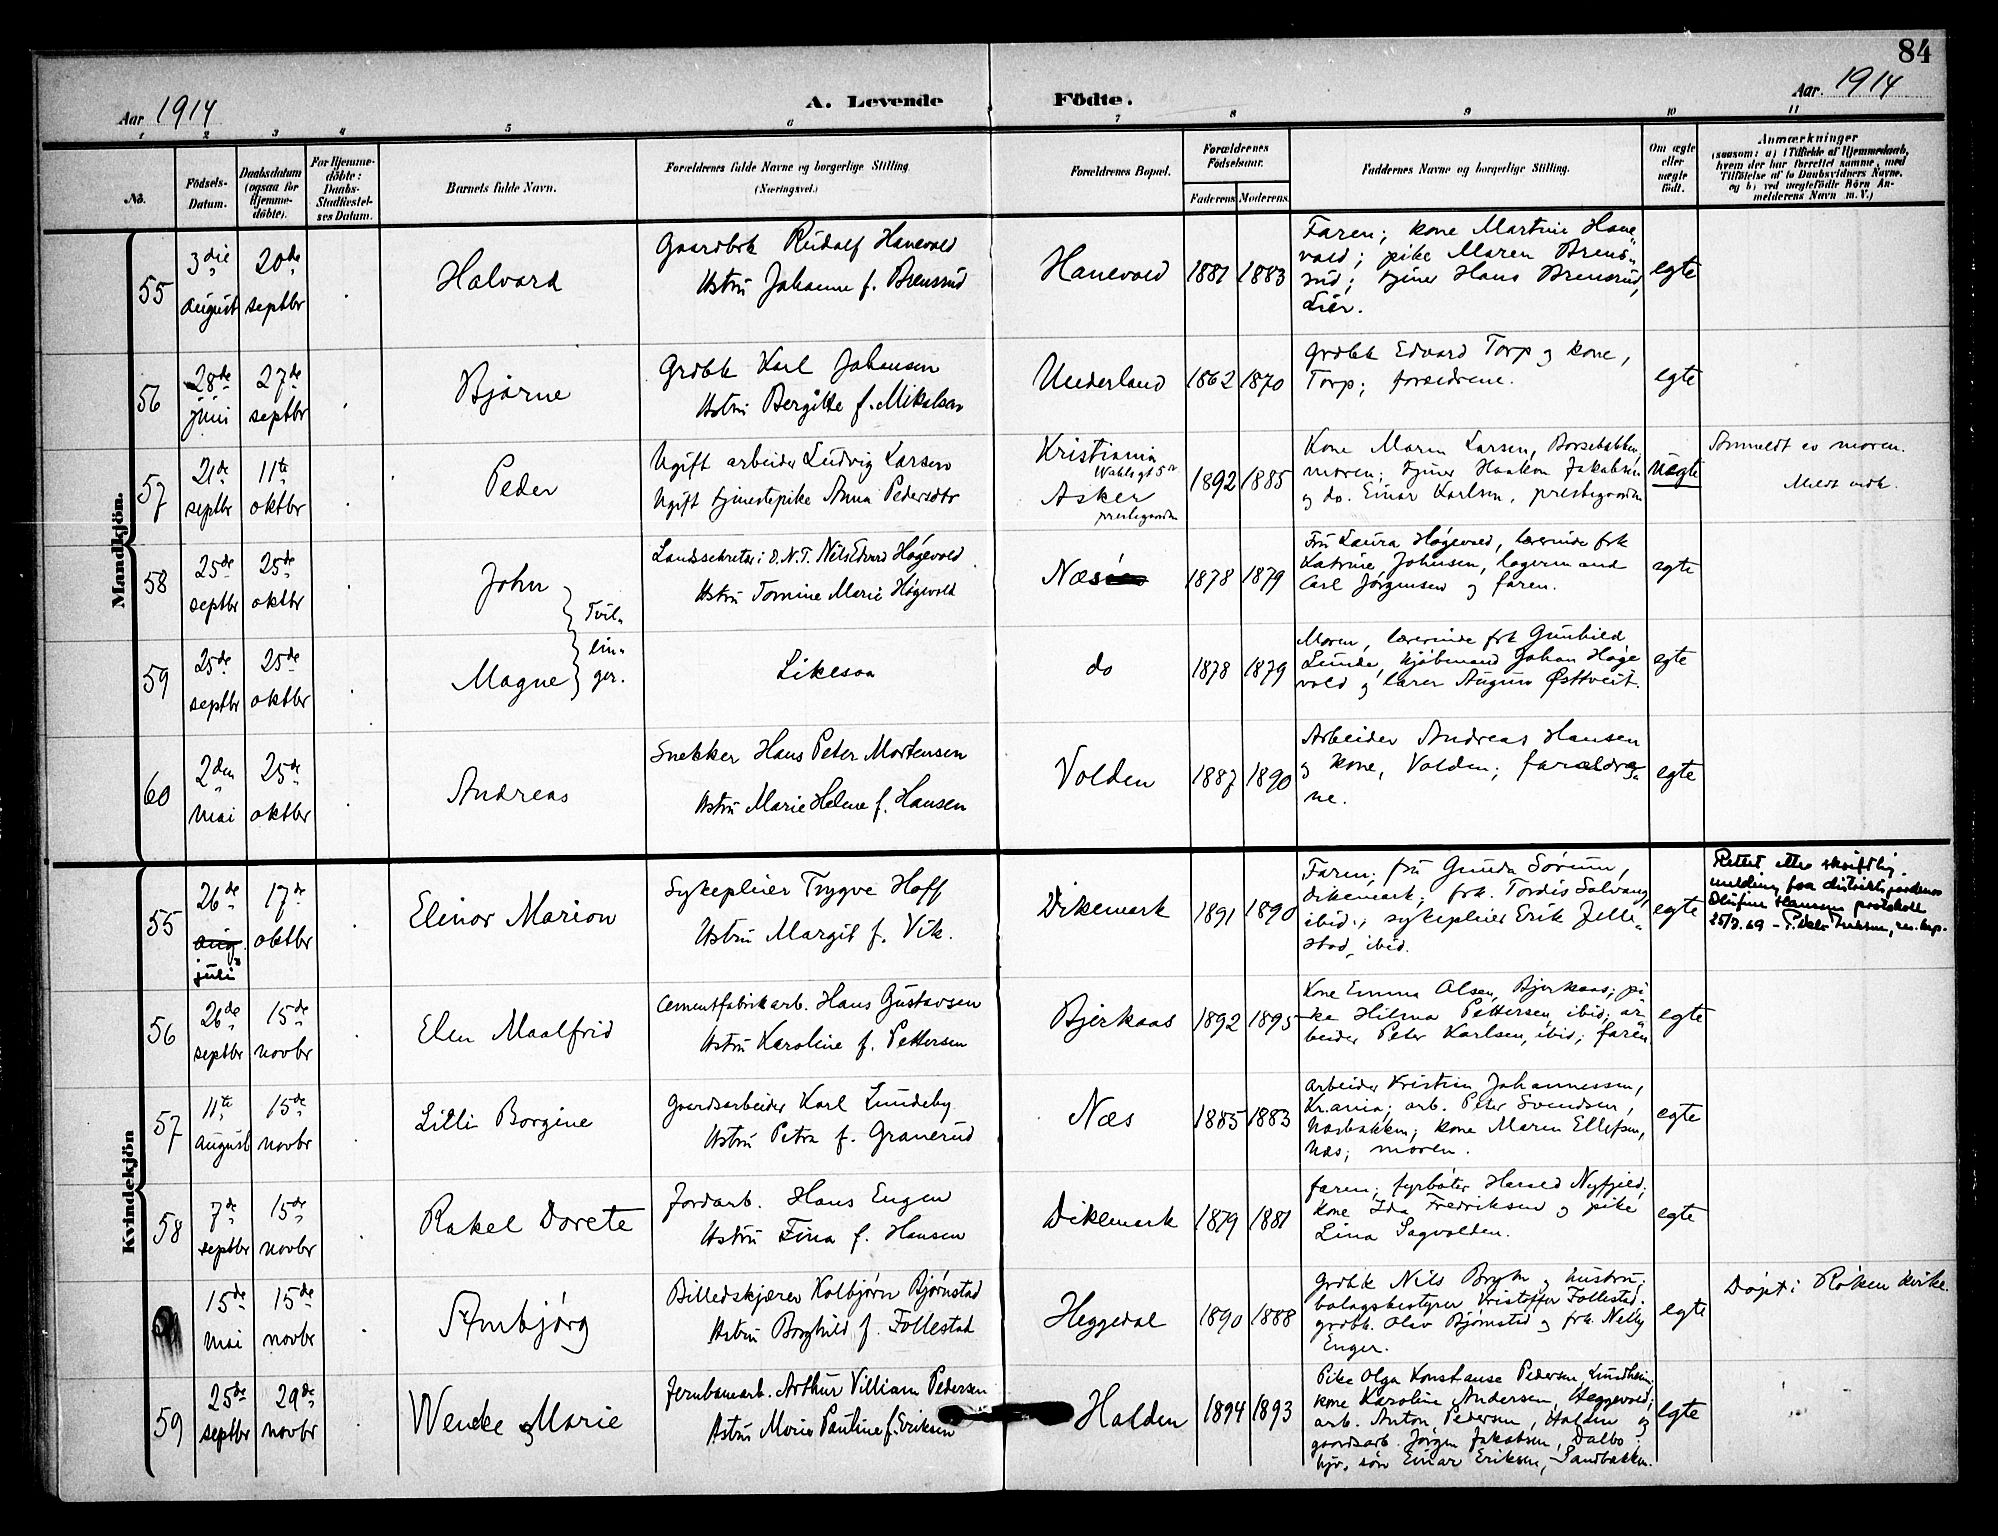 84
Aar 1914
A. Levende Födte.
Aar. 1914
1 2 3 4 5 6 7 8 9 10 11
No.
Födsels-
Datum.
Daabsdatum
(ogsaa for
Hjemme-
döbte).
For Hjemme-
döbte:
Daabs-
Stadfæstel-
ses Datum.
Barnets fulde Navn.
Forældrenes fulde Navne og borgerlige Stilling
(Næringsvei.)
Forældrenes Bopæl.
Forældrenes
Födselsaar.
Faderens Moderens
Faddernes Navne og borgerlige Stilling.
Om ægte
eller
uægte
født.
Anmærkninger
(saasom: a) i Tilfælde af Hjemmedaab,
hvem der har forrettet samme, med
Tilföielse af to Daabsvidners Navne.
og b) ved uægtefödte Börn An-
melderens Navn m. V.)
Mandkjön.
55
3die
august
20de
septbr
Halvard
Gaardbrk Rudolf Hanevold
Hustru Johanne f. Brensrud
Hanevold
1881 1883
Faren; kone Martine Hane-
vold; pike Maren Brens-
rud; tjener Hans Brensrud,
Lier.
egte
56
28de
juni
27de
septbr
Bjarne
Grdbk Karl Johansen
Hustru Bergitte f. Mikalsen
Underland
1862 1870
Grdbk Edvard Torp og kone,
Torp; forældrene.
egte
57
21de
septbr
11te
oktbr
Peder
Ugift arbeider Ludvig Larsen
Ugift tjenestepike Anna Pedersdtr
Kristiania
Asker
prestegaarden
1892 1885
Kone Maren Larsen, Borsebakken,
moren; tjener Haakon Jakobsen
og do. Einar Karlsen, prestegaarden
uegte
Anmeldt av moren.
58
25de
septbr
25de
oktbr
John
Landssekretær i D.N.T. Nils Edvard Høgevold
Hustru Tomine Marie Høgevold
Næs
1878 1879
Fru Laura Høgevold, lærerinde frk
Katrine Johnsen, lagermand
Carl Jørgensen og faren.
egte
Tvil-
lin-
ger.
59
25de
septbr
25de
oktbr
Magne
Likesaa
do
1878 1879
Moren, lærerinde frk Gunhild
Lunde, kjøbmand Johan Høge
vold og lærer Østtveit.
egte
60
2den
mai
25de
oktbr
Andreas
Snekker Hans Peter Mortensen
Hustru Marie Helene f. Hansen
Volden
1887 1890
Arbeider Andreas Hansen
og kone, Volden; forældre-
ne.
egte
Kvindekjön
55
26de
aug.
juli
17de
oktbr
Elinor Marion
Sykepleier Trygve Hoff
Hustru Margit f. Vik.
Dikemark
1891 1890
Faren; fru Gunda Sørum,
Dikemark; frk. Tordis Solvang,
ibid.; sykepleier Erik Jelle-
stad, ibid.
egte
Rettet etter skriftlig
melding fra distriktsjordmor
Hansens protokoll
56
26de
septbr
15de
novbr
Elen Maalfrid
Cementfabrikarb. Hans Gustavsen
Hustru Karoline f. Pettersen
Bjerkaas
1892 1895
Kone Emma Olsen, Bjerkaas; pi-
ke Hilma Pettersen, ibid; ar
beider Peter Karlsen, ibid; faren
egte
57
11te
august
15de
novbr
Lilli Borgine
Gaardsarbeider Karl Lundeby
Hustru Petra f. Granerud
Næs
1885 1883
Arbeider Kristian Johannessen,
Kr.ania; arb. Peter Svendsen,
Næsbakken; kone Maren Ellefsen,
Næs; moren.
egte
58
7de
septbr
15de
novbr
Rakel Dorete
Jordarb. Hans Engen
Hustru Fina f. Hansen
Dikemark
1879 1881
Faren; fyrbøter Harald Nyfjeld;
kone Ida Fredriksen og pike
Lina Sagvolden.
egte
15de
mai
15de
novbr
Arnbjørg
Billedskjærer Kolbjørn Bjørnstad
Hustru Borghild f. Follestad
Heggedal
1890 1888
Grdbk Nils og hustru;
bolagsbestyrer Kristoffer Follestad;
grdbk. Olav Bjørnstad og frk. Nelly
Enger.
egte
Døpt i Røken kirke.
59
25de
septbr
29de
novbr
Wenche Marie
Jernbanearb. Arthur Villiam Pedersen
Hustru Marie Pauline f. Eriksen
Halden
1894 1893
Pike Olga Konstanse Pedersen, Lundheim;
kone Karoline Andersen, Heggevold;
arb. Anton Pedersen, Halden og
gaardsarb. Jørgen Jakobsen, Dalbo;
hjv. søn Einar Eriksen, Sandbakken.
egte